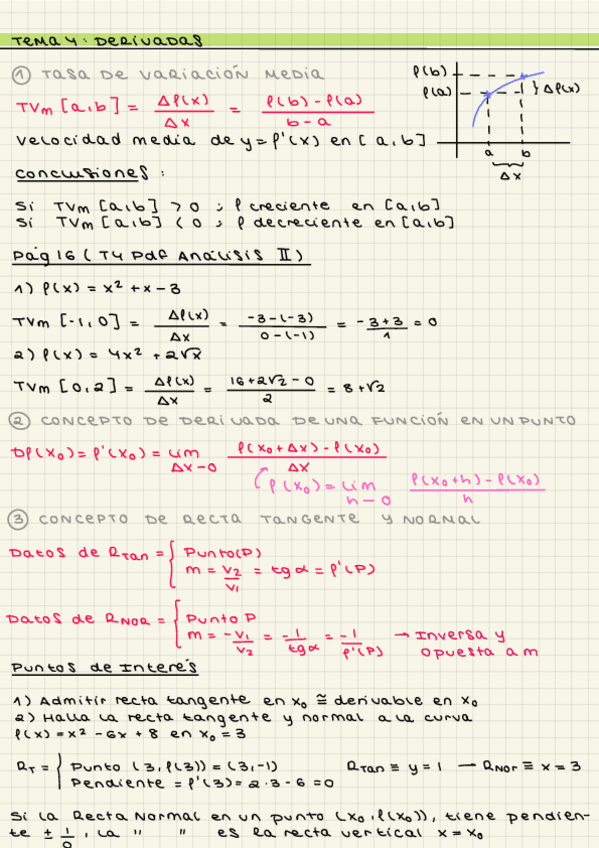 TEMA 4: DERIVADAS
① TASA DE VARIACIÓN MEDIA
TVm [a,b] = Δf(x)/Δx = (f(b) - f(a))/(b - a)
f(b)
f(a)
} Δf(x)
a b
Δx
velocidad media de y = f'(x) en [a,b]
conclusiones:
Si TVm [a,b] > 0 ; f creciente en [a,b]
Si TVm [a,b] < 0 ; f decreciente en [a,b]
Pág 16 (T4 Pdf Análisis II)
1) f(x) = x² + x - 3
TVm [-1,0] = Δf(x)/Δx = (-3-(-3))/(0-(-1)) = (-3+3)/1 = 0
2) f(x) = 4x² + 2√x
TVm [0,2] = Δf(x)/Δx = (16+2√2-0)/2 = 8+√2
② CONCEPTO DE DERIVADA DE UNA FUNCIÓN EN UN PUNTO
Df(x₀) = f'(x₀) = Lim Δx→0 (f(x₀+Δx) - f(x₀))/Δx
f(x₀) = Lim h→0 (f(x₀+h) - f(x₀))/h
③ CONCEPTO DE RECTA TANGENTE Y NORMAL
Datos de RTan = { Punto(P)
m = v₂/v₁ = tgα = f'(P)
Datos de RNOR = { Punto P
m = -v₁/v₂ = -1/tgα = -1/f'(P) → Inversa y
opuesta a m
Puntos de Interés
1) Admitir recta tangente en x₀ ≅ derivable en x₀
2) Halla la recta tangente y normal a la curva
f(x) = x² - 6x + 8 en x₀ = 3
RT = { Punto (3, f(3)) = (3,-1) RTan ≡ y = 1 → RNor ≡ x = 3
Pendiente = f'(3) = 2·3 - 6 = 0
Si la Recta Normal en un punto (x₀, f(x₀)), tiene pendien-
te ± 1/0, la " " es la recta vertical x = x₀